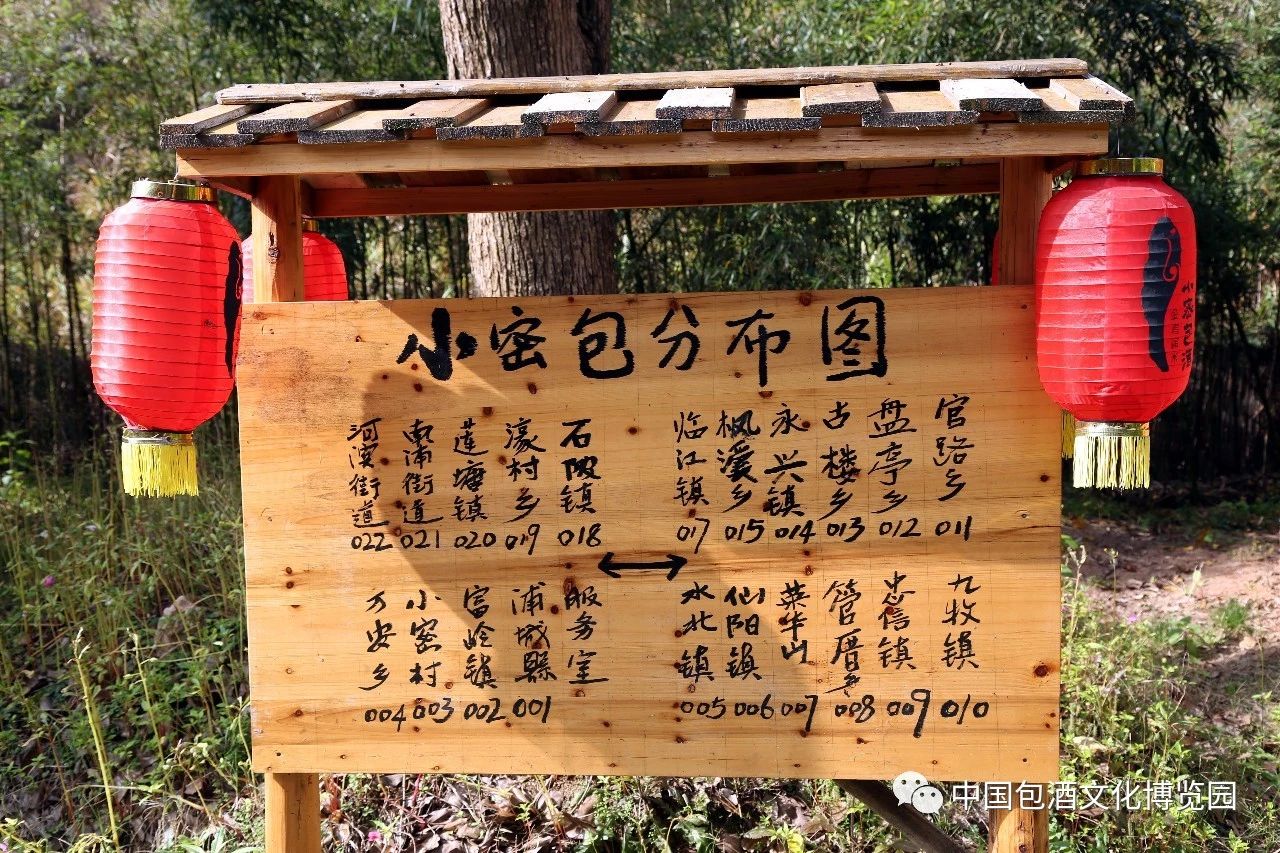 小密包分布图
河滨街道 022
南浦街道 021
莲塘镇 020
濠村乡 019
石陂镇 018
临江镇 017
枫溪乡 015
永兴镇 014
古楼乡 013
盘亭乡 012
官路乡 011
万安乡 004
小密村 003
富岭镇 002
浦城縣 001
服务室
水北镇 005
仙阳镇 006
菜华山 007
管厝乡 008
忠信镇 009
九牧镇 010
小密包酒
中国包酒文化博览园